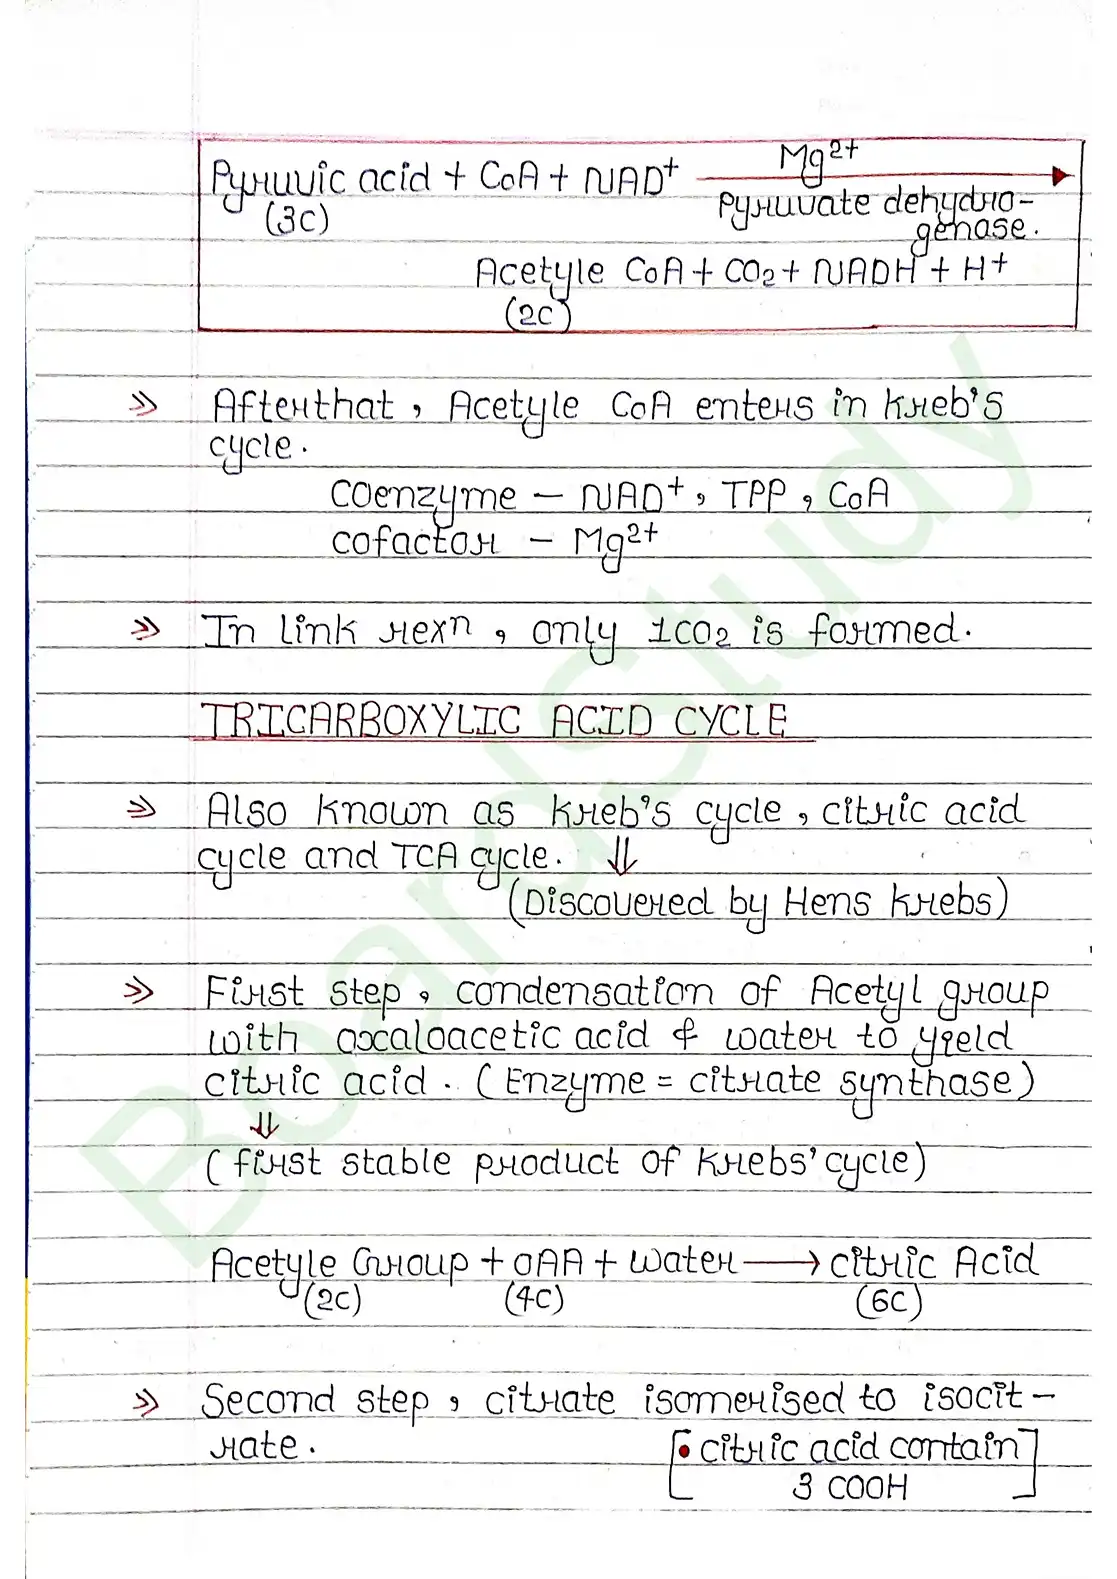 Pyruvic acid + CoA + NAD⁺ Mg²⁺
(3C) Pyruvate dehydro-
genase.
Acetyle CoA + CO₂ + NADH + H⁺
(2C)
≫ Afterthat, Acetyle CoA enters in Kreb's
cycle.
Coenzyme – NAD⁺, TPP, CoA
cofactor – Mg²⁺
≫ In link rexⁿ, only 1CO₂ is formed.
TRICARBOXYLIC ACID CYCLE
≫ Also known as Kreb's cycle, citric acid
cycle and TCA cycle. ⇓
(Discovered by Hens Krebs)
≫ First step, condensation of Acetyl group
with oxaloacetic acid & water to yield
citric acid. (Enzyme = citrate synthase)
⇓
(first stable product of Krebs' cycle)
Acetyle Group + OAA + Water → citric Acid
(2C) (4C) (6C)
≫ Second step, citrate isomerised to isocit-
rate. [• citric acid contain
3 COOH]
BoardStudy